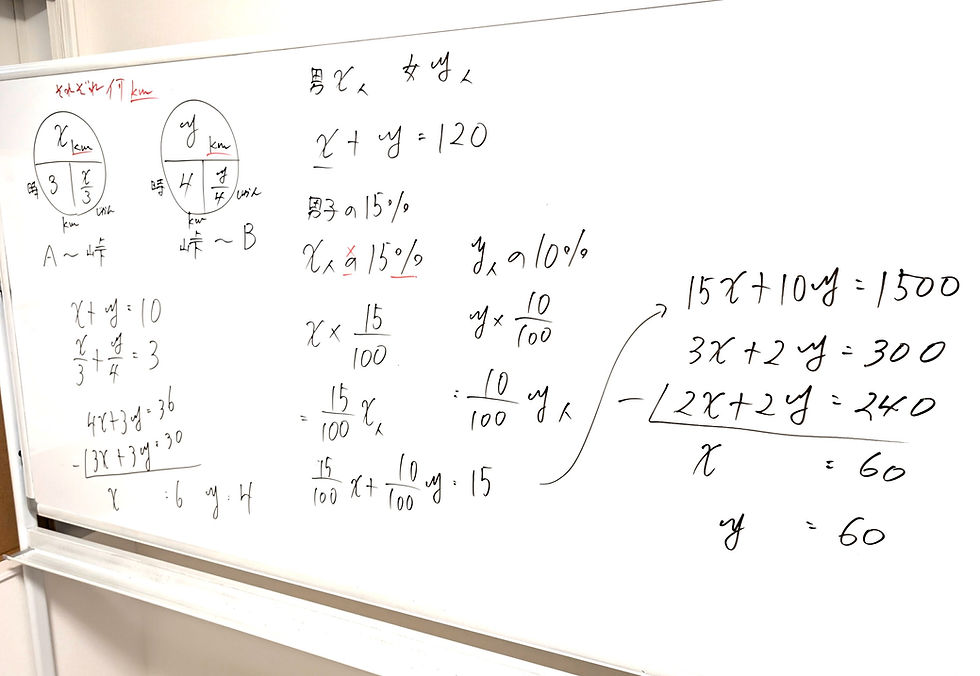 それぞれ何km
x km
時 3 x/3
km
A～峠
y km
時 4 y/4
km
峠～B
x + y = 10
x/3 + y/4 = 3
4x + 3y = 36
-) 3x + 3y = 30
x = 6 y = 4
男 x人 女 y人
x + y = 120
男子の15%
x人の15% y人の10%
×
x × 15/100 y × 10/100
= 15/100 x人 = 10/100 y人
15/100 x + 10/100 y = 15
15x + 10y = 1500
3x + 2y = 300
-) 2x + 2y = 240
x = 60
y = 60